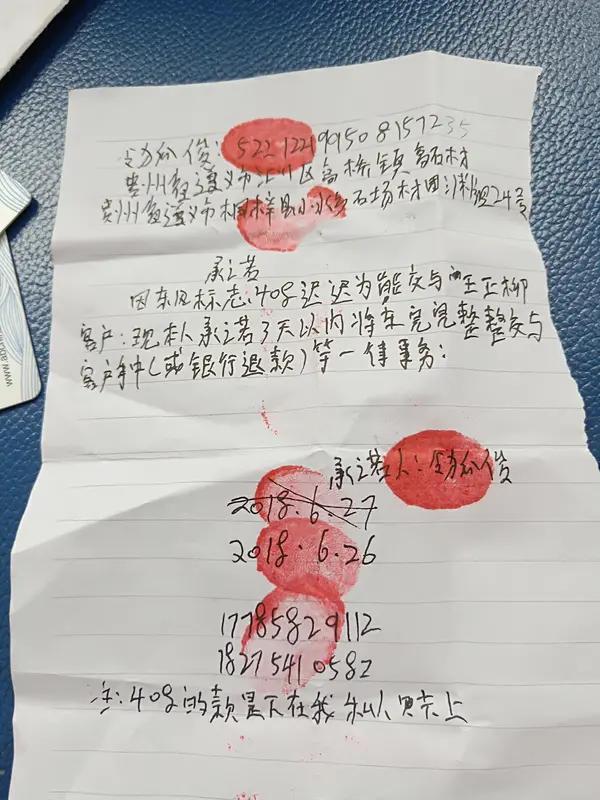 俊: 522122199508157235
贵州省遵义市汇川区高桥镇 石材
贵州省遵义市桐梓县 石场村 组24号
承诺
因东风标志408迟迟为能交与 王正柳
客户: 现本人承诺3天以内将车完完整整交与
客户手中(或银行退款)等一律事务:
承诺人: 俊
2018.6.27
2018.6.26
17785829112
18275410582
注: 408的款是下在我私人账上
www.abc